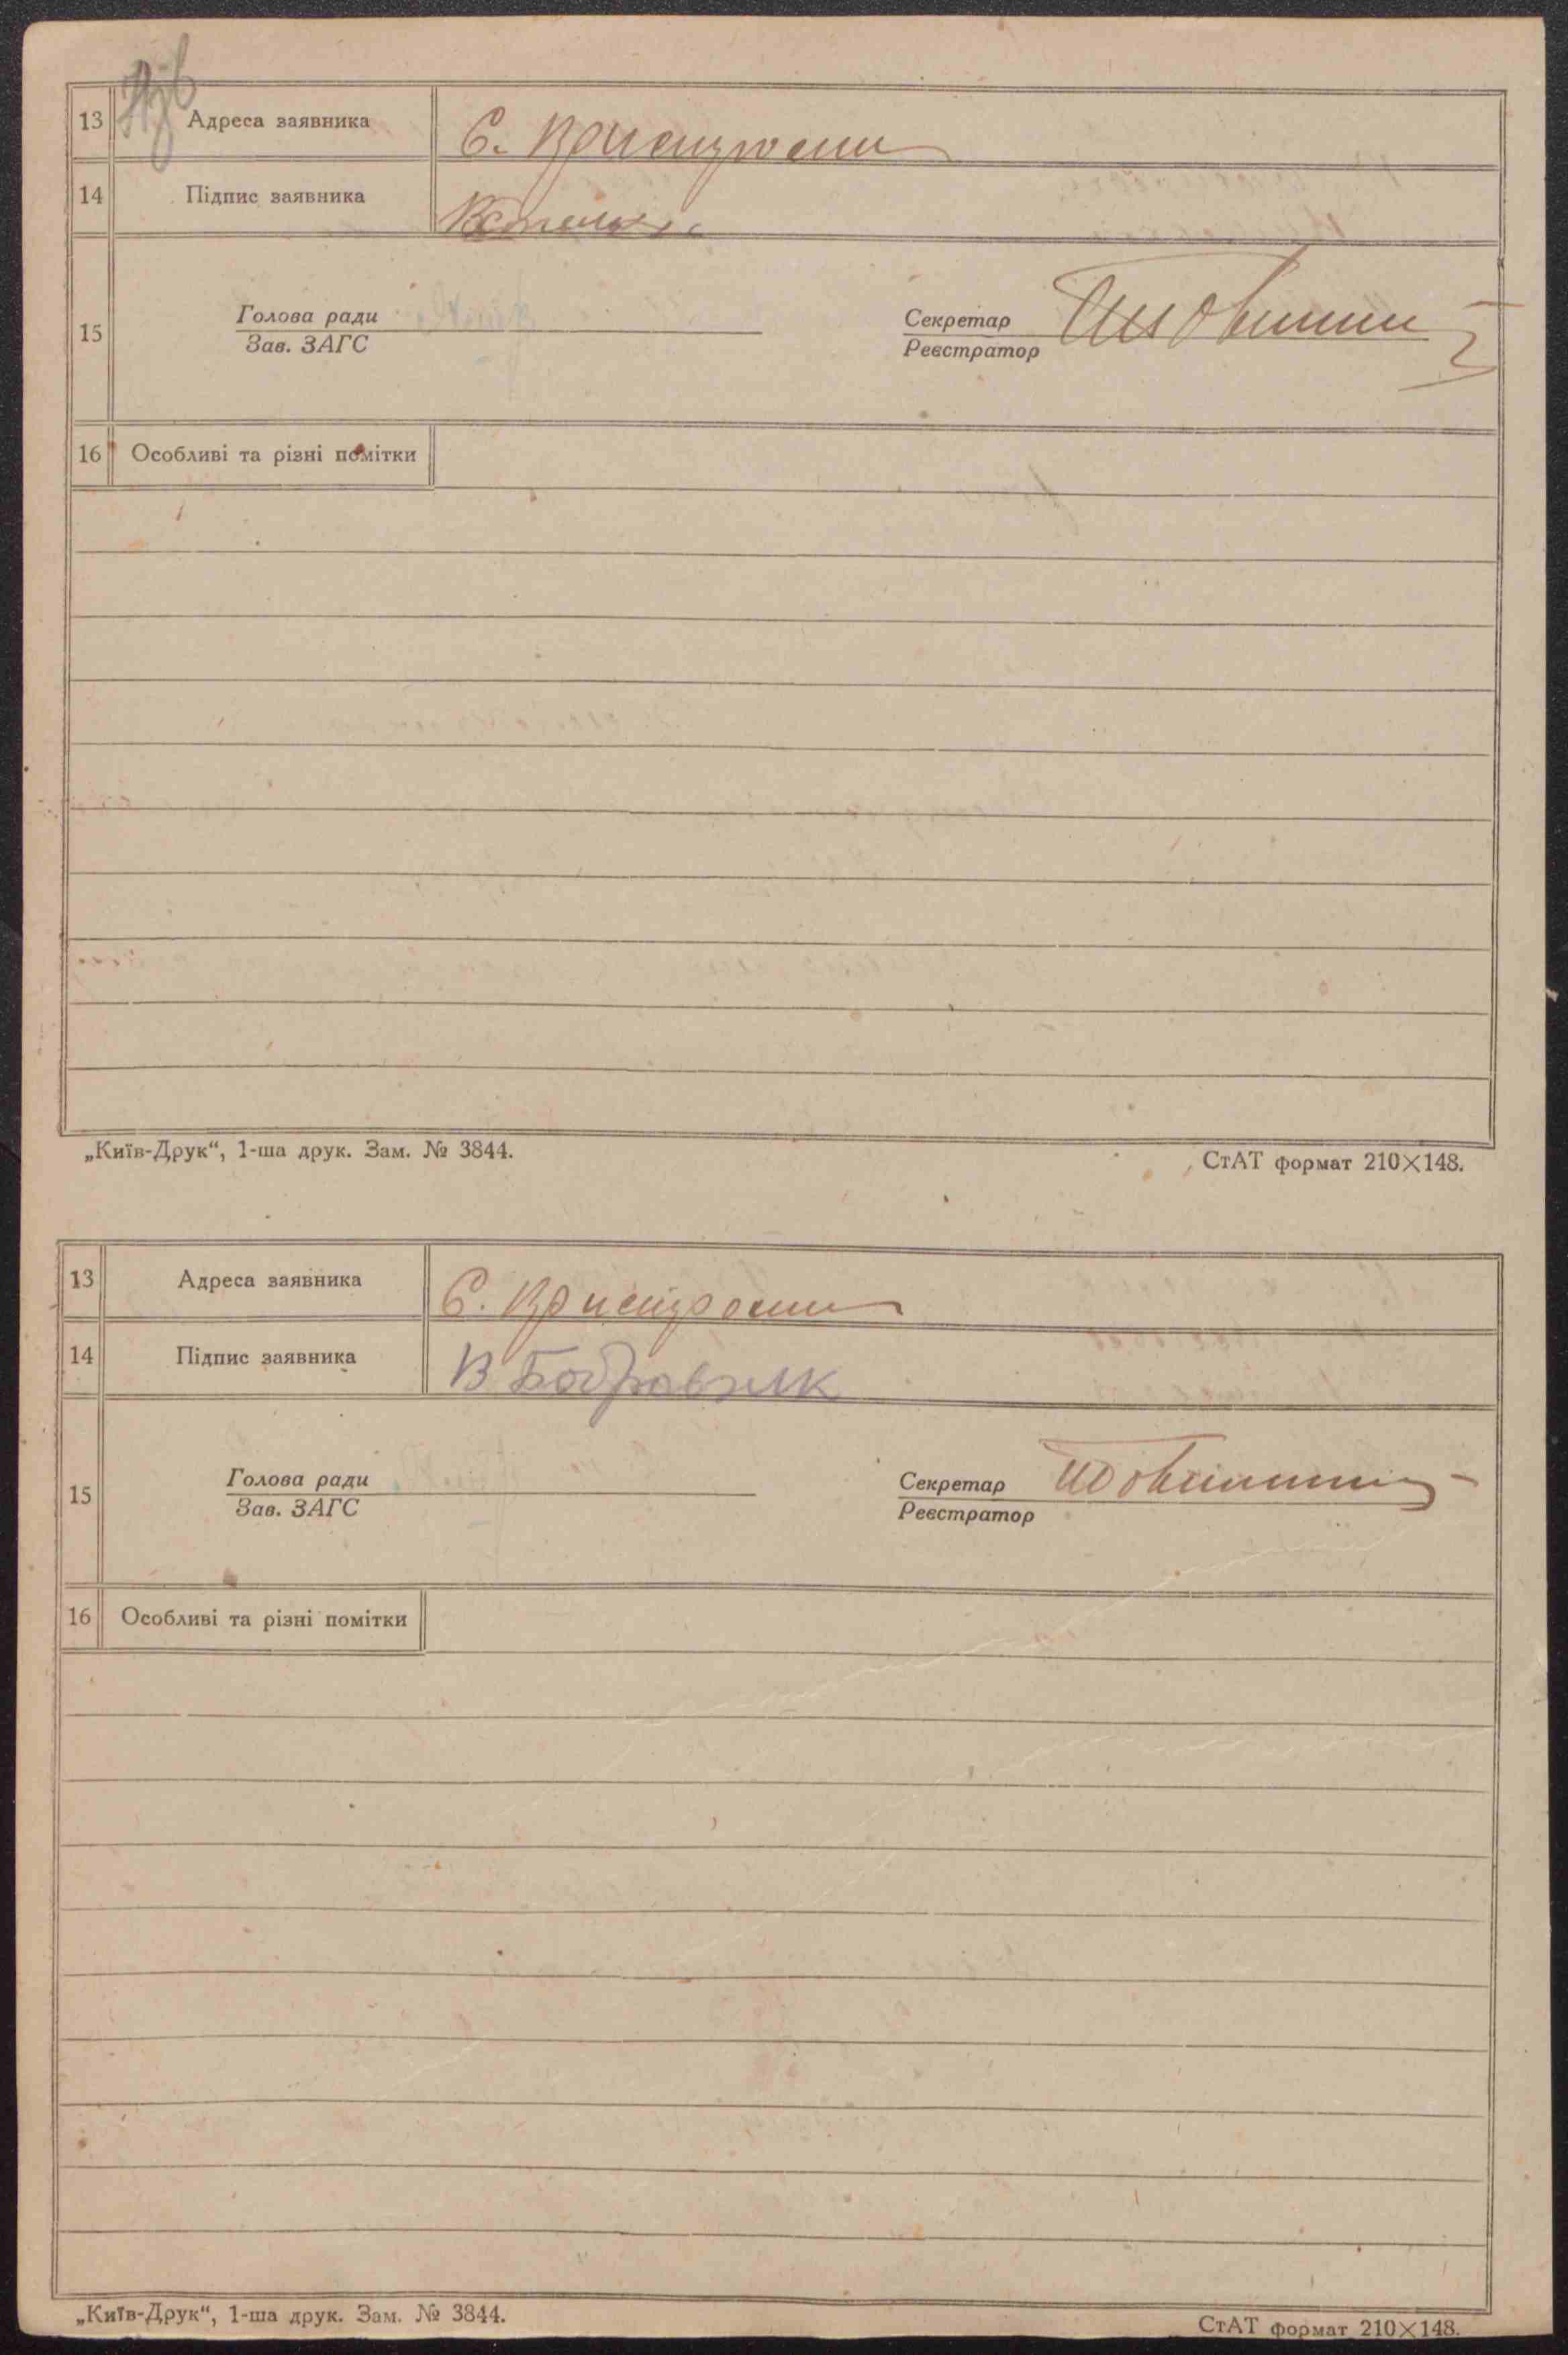 13 Адреса заявника С.
14 Підпис заявника
15 Голова ради Секретар
Зав. ЗАГС Реєстратор
16 Особливі та різні помітки
„Київ-Друк“, 1-ша друк. Зам. № 3844. СтАТ формат 210×148.
13 Адреса заявника С.
14 Підпис заявника В
15 Голова ради Секретар
Зав. ЗАГС Реєстратор
16 Особливі та різні помітки
„Київ-Друк“, 1-ша друк. Зам. № 3844. СтАТ формат 210×148.